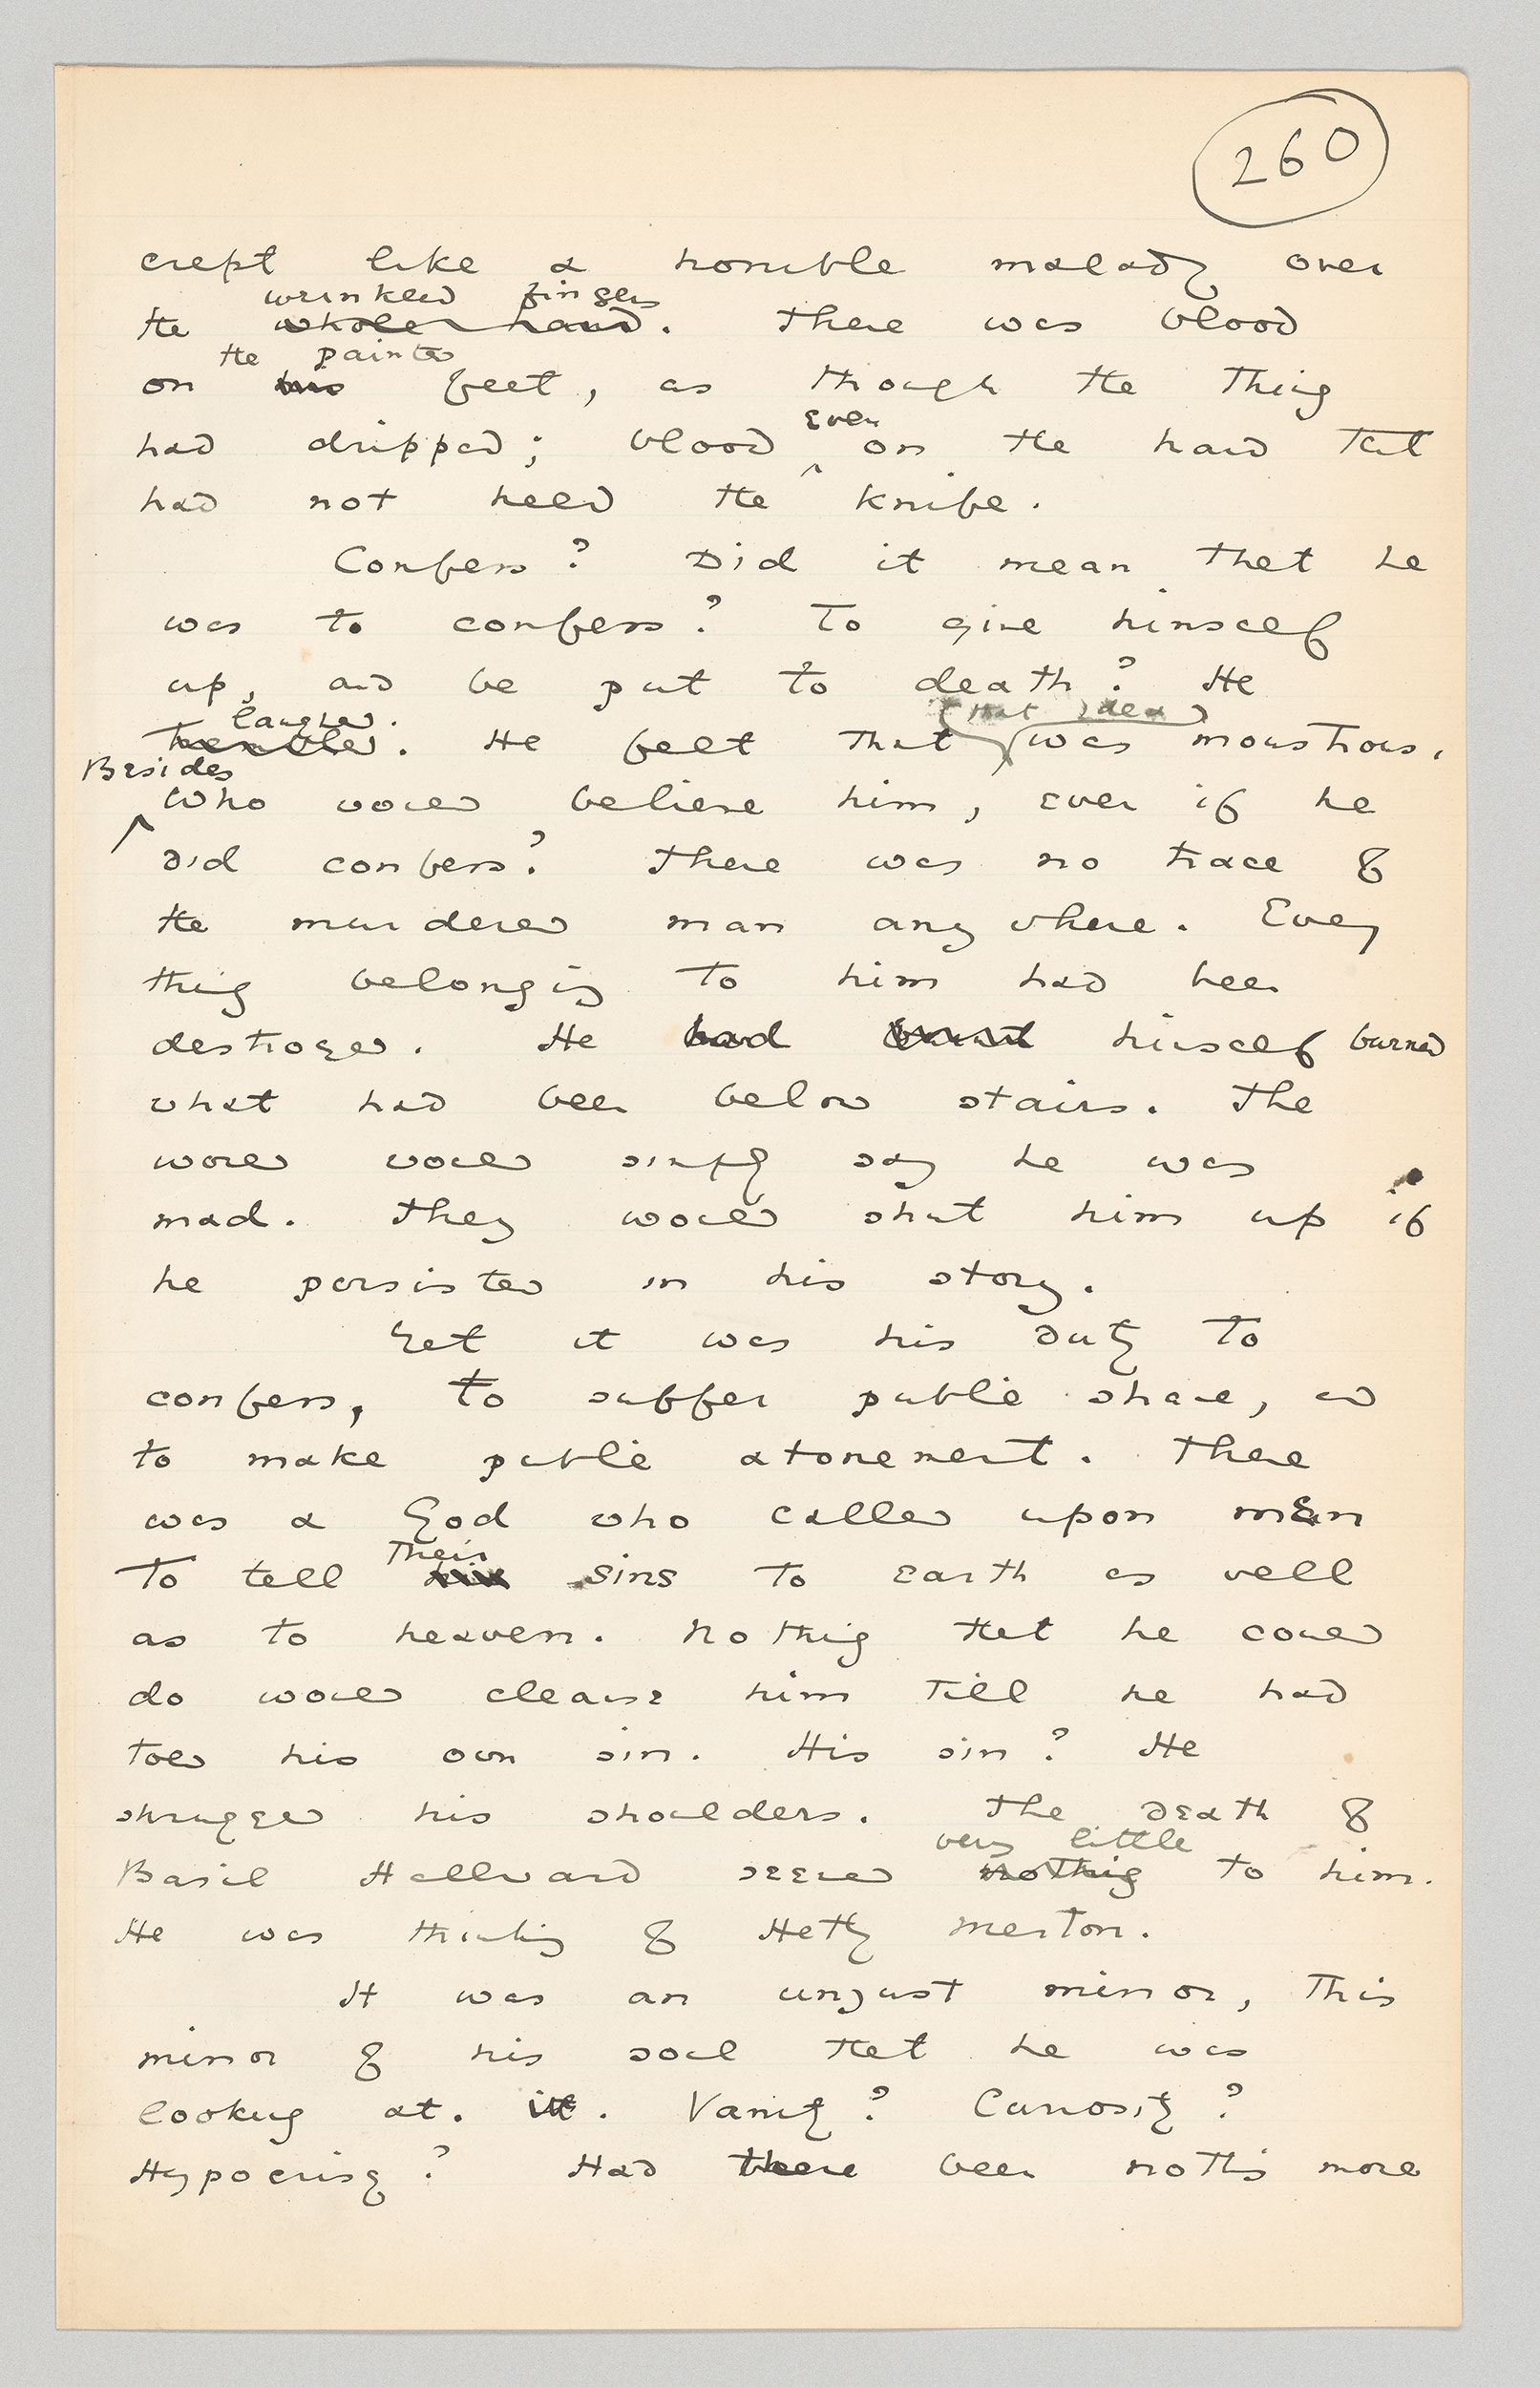 260
crept like a horrible malady over
wrinkled fingers
the whole hand. There was blood
the painted
on his feet, as though the thing
even
had dripped; blood on the hand that
had not held the knife.
Confess? Did it mean that he
was to confess? To give himself
up, and be put to death? He
laughed. that idea
trembled. He felt that was monstrous.
Besides
Who would believe him, even if he
did confess? There was no trace of
the murdered man anywhere. Every
thing belonging to him had been
destroyed. He had burnt himself burned
what had been below stairs. The
world would simply say he was
mad. They would shut him up if
he persisted in his story.
Yet it was his duty to
confess, to suffer public shame, and
to make public atonement. There
was a God who called upon men
their
To tell his sins to earth as well
as to heaven. Nothing that he could
do would cleanse him till he had
told his own sin. His sin? He
shrugged his shoulders. The death of
very little
Basil Hallward seemed nothing to him.
He was thinking of Hetty Merton.
It was an unjust mirror, this
mirror of his soul that he was
looking at. it. Vanity? Curiosity?
Hypocrisy? Had there been nothing more